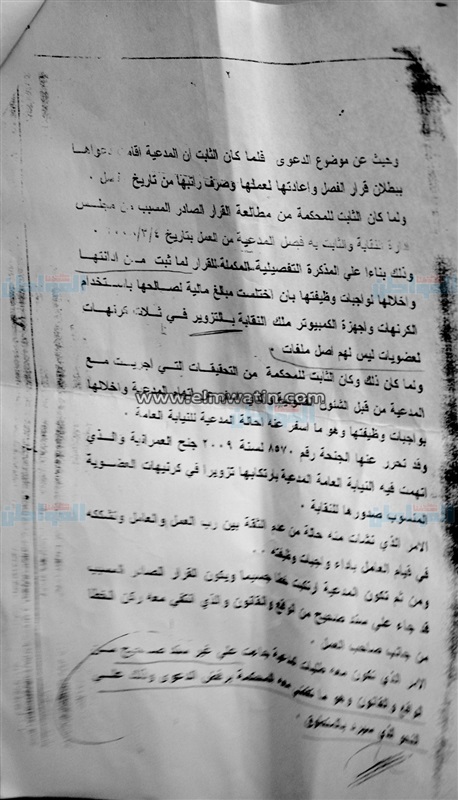 ٢
وحيث عن موضوع الدعوى فلما كان الثابت إن المدعية اقامت دعواها
ببطلان قرار الفصل وإعادتها لعملها وصرف راتبها من تاريخ
ولما كان الثابت للمحكمة من مطالعة القرار الصادر المسبب من مجلس
ادارة النقابة والثابت به فصل المدعية من العمل بتاريخ ٣/٤/
وذلك بناءا علي المذكرة التفصيلية المكملة للقرار لما ثبت من ادانتها
واخلالها لواجبات وظيفتها بان اختلست مبالغ مالية لصالحها باستخدام
الكرنهات واجهزة الكمبيوتر ملك النقابة بالتزوير في ثلاث كرنهات
لعضويات ليس لهم أصل ملفات
ولما كان ذلك وكان الثابت للمحكمة من التحقيقات التي أجريت مع
المدعية من قبل الشئون القانونية اتهام المدعية واخلالها
www.elmwatin.com
بواجبات وظيفتها وهو ما اسفر عنه احالة المدعية للنيابة العامة .
وقد تحرر عنها الجنحة رقم ٨٥٧٠ لسنة ٢٠٠٩ جنح العمرانية والذي
اتهمت فيه النيابة العامة المدعية بارتكابها تزويرا في كرنيهات العضوية
المنسوب صدورها للنقابة .
الامر الذي نشات منه حالة من عدم الثقة بين رب العمل والعامل وتشككه
في قيام العامل باداء واجبات وظيفته . .
ومن ثم تكون المدعية ارتكبت خطا جسيما ويكون القرار الصادر المسبب
قد جاء علي سند صحيح من الواقع والقانون والذي انتفي معه ركن الخطا
من جانب صاحب العمل .
الامر الذي تكون معه طلبات المدعية جاءت علي غير سند صحيح من
الواقع والقانون وهو ما تقضي معه المحكمة برفض الدعوى وذلك علي
النحو الذي سيرد بالمنطوق .